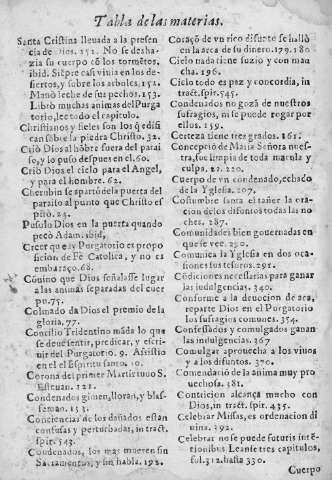 Tabla de las materias.
Santa Cristina llevada a la presen
cia de Dios. 151. No se desha-
zia su cuerpo cõ los tormẽtos.
ibid. Siẽpre casi vivia en los de-
siertos, y sobre los arboles. 151.
Manò leche de sus pechos. 153.
Librò muchas animas del Purga
torio, lee todo el capitulo.
Christianos y fieles son los q̃ edifi
can sobre la piedra Christo. 32.
Criò Dios al hõbre fuera del parai
so, y lo puso despues en el. 60.
Criò Dios el cielo para el Angel,
y para el hombre. 62.
Cherubin se apartò de la puerta del
paraiso al punto que Christo es
pirò. 24.
Pusolo Dios en la puerta quando
pecò Adam. ibid.
Creer que ay Purgatorio es propo
sicion de Fè Catolica, y no es
embaraço. 68.
Cõuino que Dios señalasse lugar
a las animas separadas del cuer
po. 75.
Colmado da Dios el premio de la
gloria. 77.
Concilio Tridentino mãda lo que
se deve sentir, predicar, y escri-
uir del Purgatorio. 9. Assistio
en el el Espiritu santo. 10.
Corona del primer Martir tuuo S.
Esteuan. 121.
Condenados gimen, lloran, y blas
feman. 153.
Conciencias de los dañados estan
confusas y perturbadas, in tract.
spir. 543.
Condenados, los mas mueren sin
Sacramentos, y sin habla. 192.
Coraçõ de vn rico difunto se hallò
en la arca de su dinero. 179. 180
Cielo nada tiene suzio y con man
cha. 196.
Cielo todo es paz y concordia, in
tract. spir. 545.
Condenados no gozã de nuestros
sufragios, ni se puede rogar por
ellos. 159.
Certeza tiene tres grados. 161.
Concepciõ de Maria Señora nues-
tra, fue limpia de toda macula y
culpa. 220.
Cuerpo de vn condenado, echado
de la Yglesia. 207.
Costumbre santa el tañer la ora
cion de los difuntos todas las no
ches. 287.
Comunidades bien gouernadas en
que se vee. 290.
Comunica la Yglesia en dos oca-
siones sus tesoros. 291.
Cõdiciones necessarias para ganar
las indulgencias. 340.
Conforme a la deuocion de acà,
reparte Dios en el Purgatorio
los sufragios comunes. 354.
Confessados y comulgados ganan
las indulgencias. 367
Comulgar aprouecha a los viuos
y a los difuntos. 370.
Comendaciõ de la anima muy pro
uechosa. 381.
Contricion alcança mucho con
Dios, in tract. spir. 435.
Celebrar Missas, es ordenacion di
uina. 392.
Celebrar no se puede suturis inte-
ribus Leante tres capitulos,
fol. 312. hasta 330.
Cuerpo